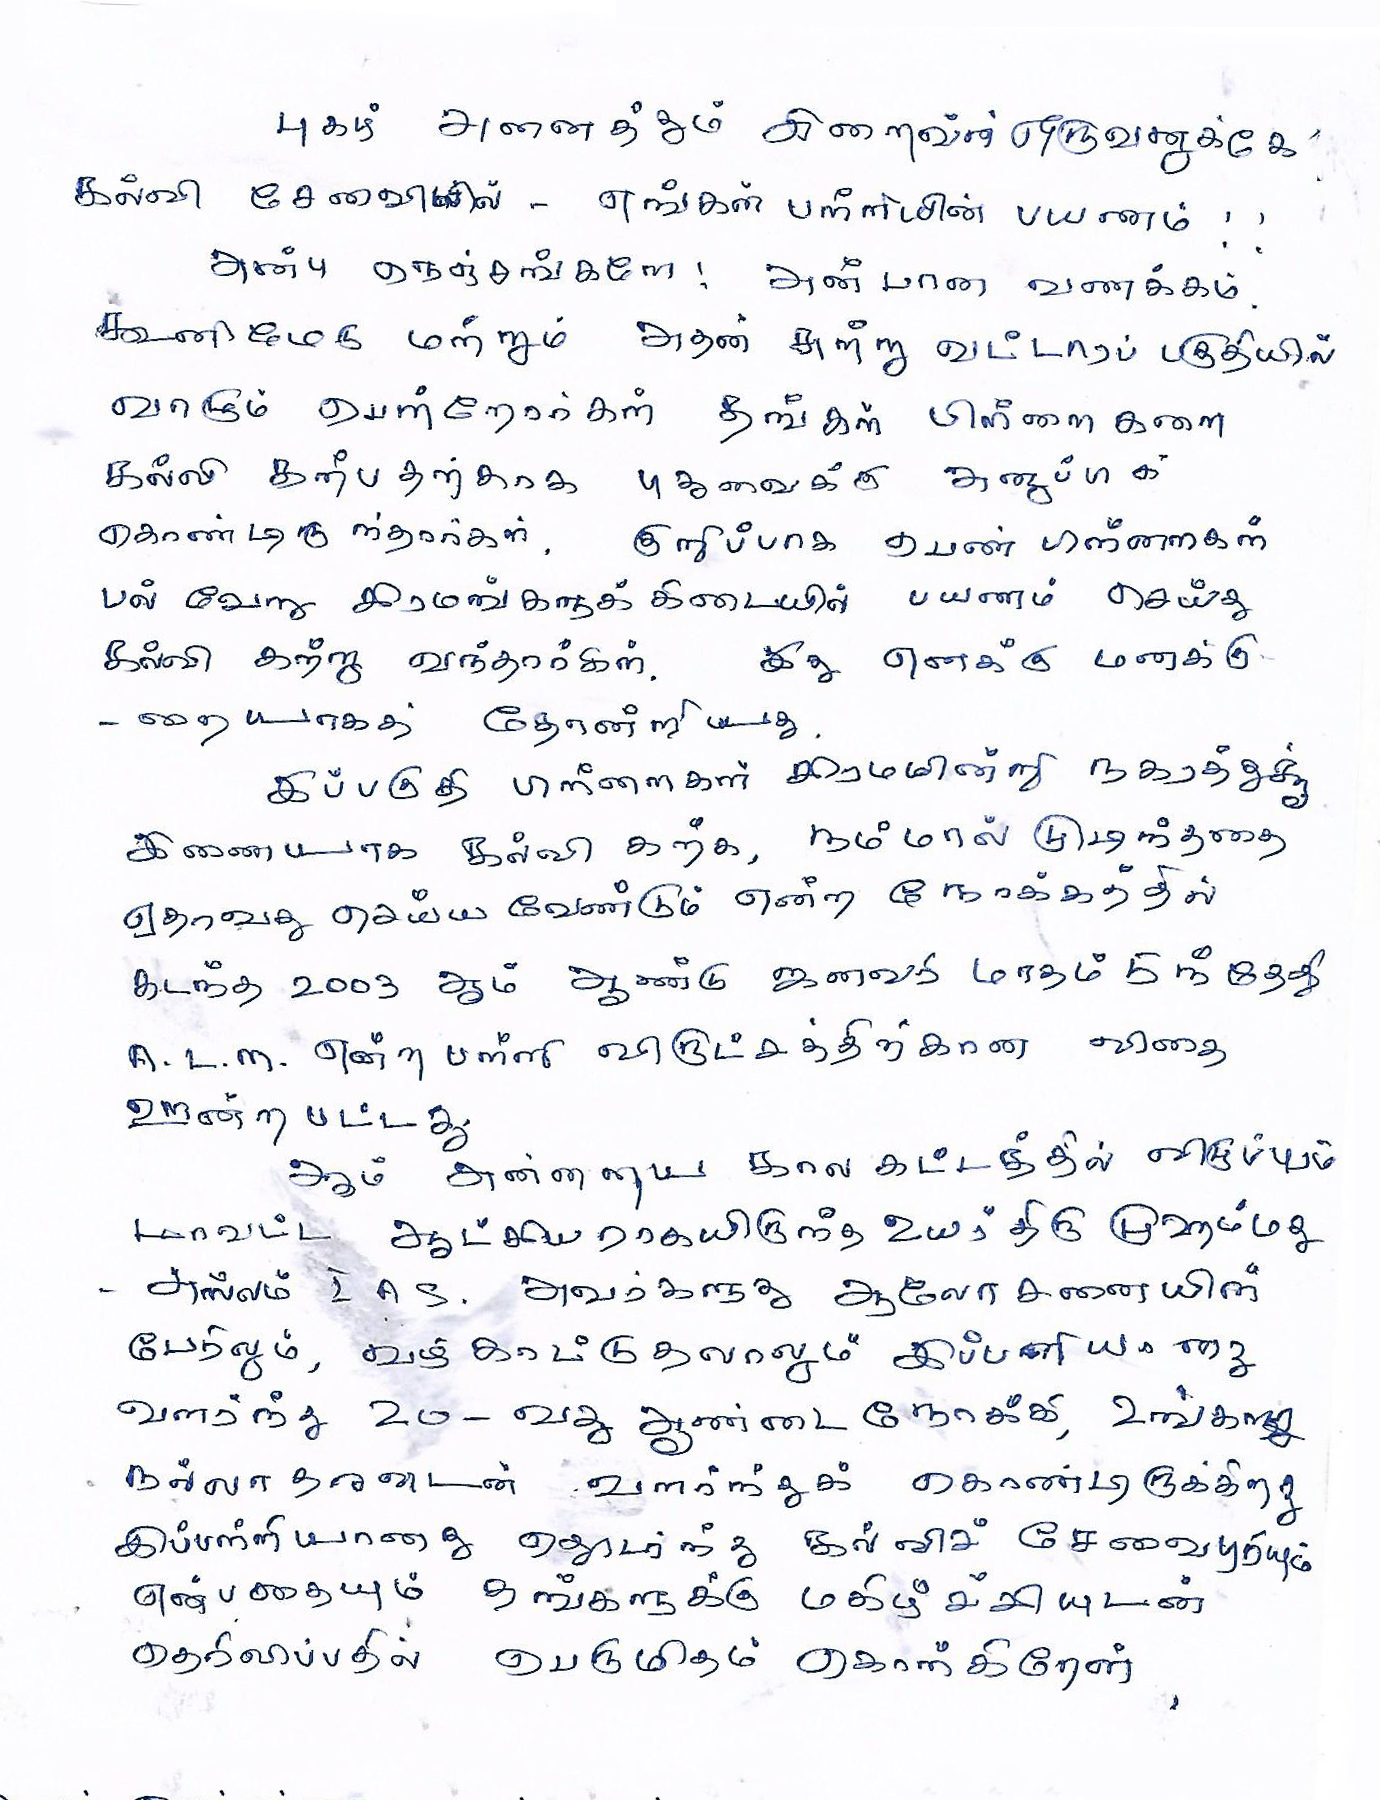 புகழ் அனைத்தும் இறைவன் ஒருவனுக்கே
கல்வி சேவையில் - எங்கள் பள்ளியின் பயணம் !!
அன்பு நெஞ்சங்களே! அன்பான வணக்கம்.
கூனிமேடு மற்றும் அதன் சுற்று வட்டாரப் பகுதியில்
வாழும் பெற்றோர்கள் தங்கள் பிள்ளைகளை
கல்வி கற்பதற்காக புதுவைக்கு அனுப்பிக்
கொண்டிருந்தார்கள். குறிப்பாக பெண் பிள்ளைகள்
பல் வேறு சிரமங்களுக்கிடையில் பயணம் செய்து
கல்வி கற்று வந்தார்கள். இது எனக்கு மனக்கு
- றையாகத் தோன்றியது.
இப்பகுதி பிள்ளைகள் சிரமமின்றி நகரத்துக்கு
இணையாக கல்வி கற்க, நம்மால் முடிந்ததை
ஏதாவது செய்ய வேண்டும் என்ற நோக்கத்தில்
கடந்த 2003 ஆம் ஆண்டு ஜனவரி மாதம் 5ந் தேதி
A.L.M. என்ற பள்ளி விருட்சத்திற்கான விதை
ஊன்றபட்டது
ஆம் அன்றைய கால கட்டத்தில் விழுப்புரம்
மாவட்ட ஆட்சியராகயிருந்த உயர்திரு முஹம்மது
- அஸ்லம் I A S. அவர்களது ஆலோசனையின்
பேரிலும், வழி காட்டுதலாலும் இப்பள்ளியானது
வளர்ந்து 20-வது ஆண்டை நோக்கி, உங்களது
நல்லாதரவுடன் வளர்ந்துக் கொண்டிருக்கிறது
இப்பள்ளியானது தொடர்ந்து கல்விச் சேவைபுரியும்
என்பதையும் தங்களுக்கு மகிழ்ச்சியுடன்
தெரிவிப்பதில் பெருமிதம் கொள்கிறேன்,